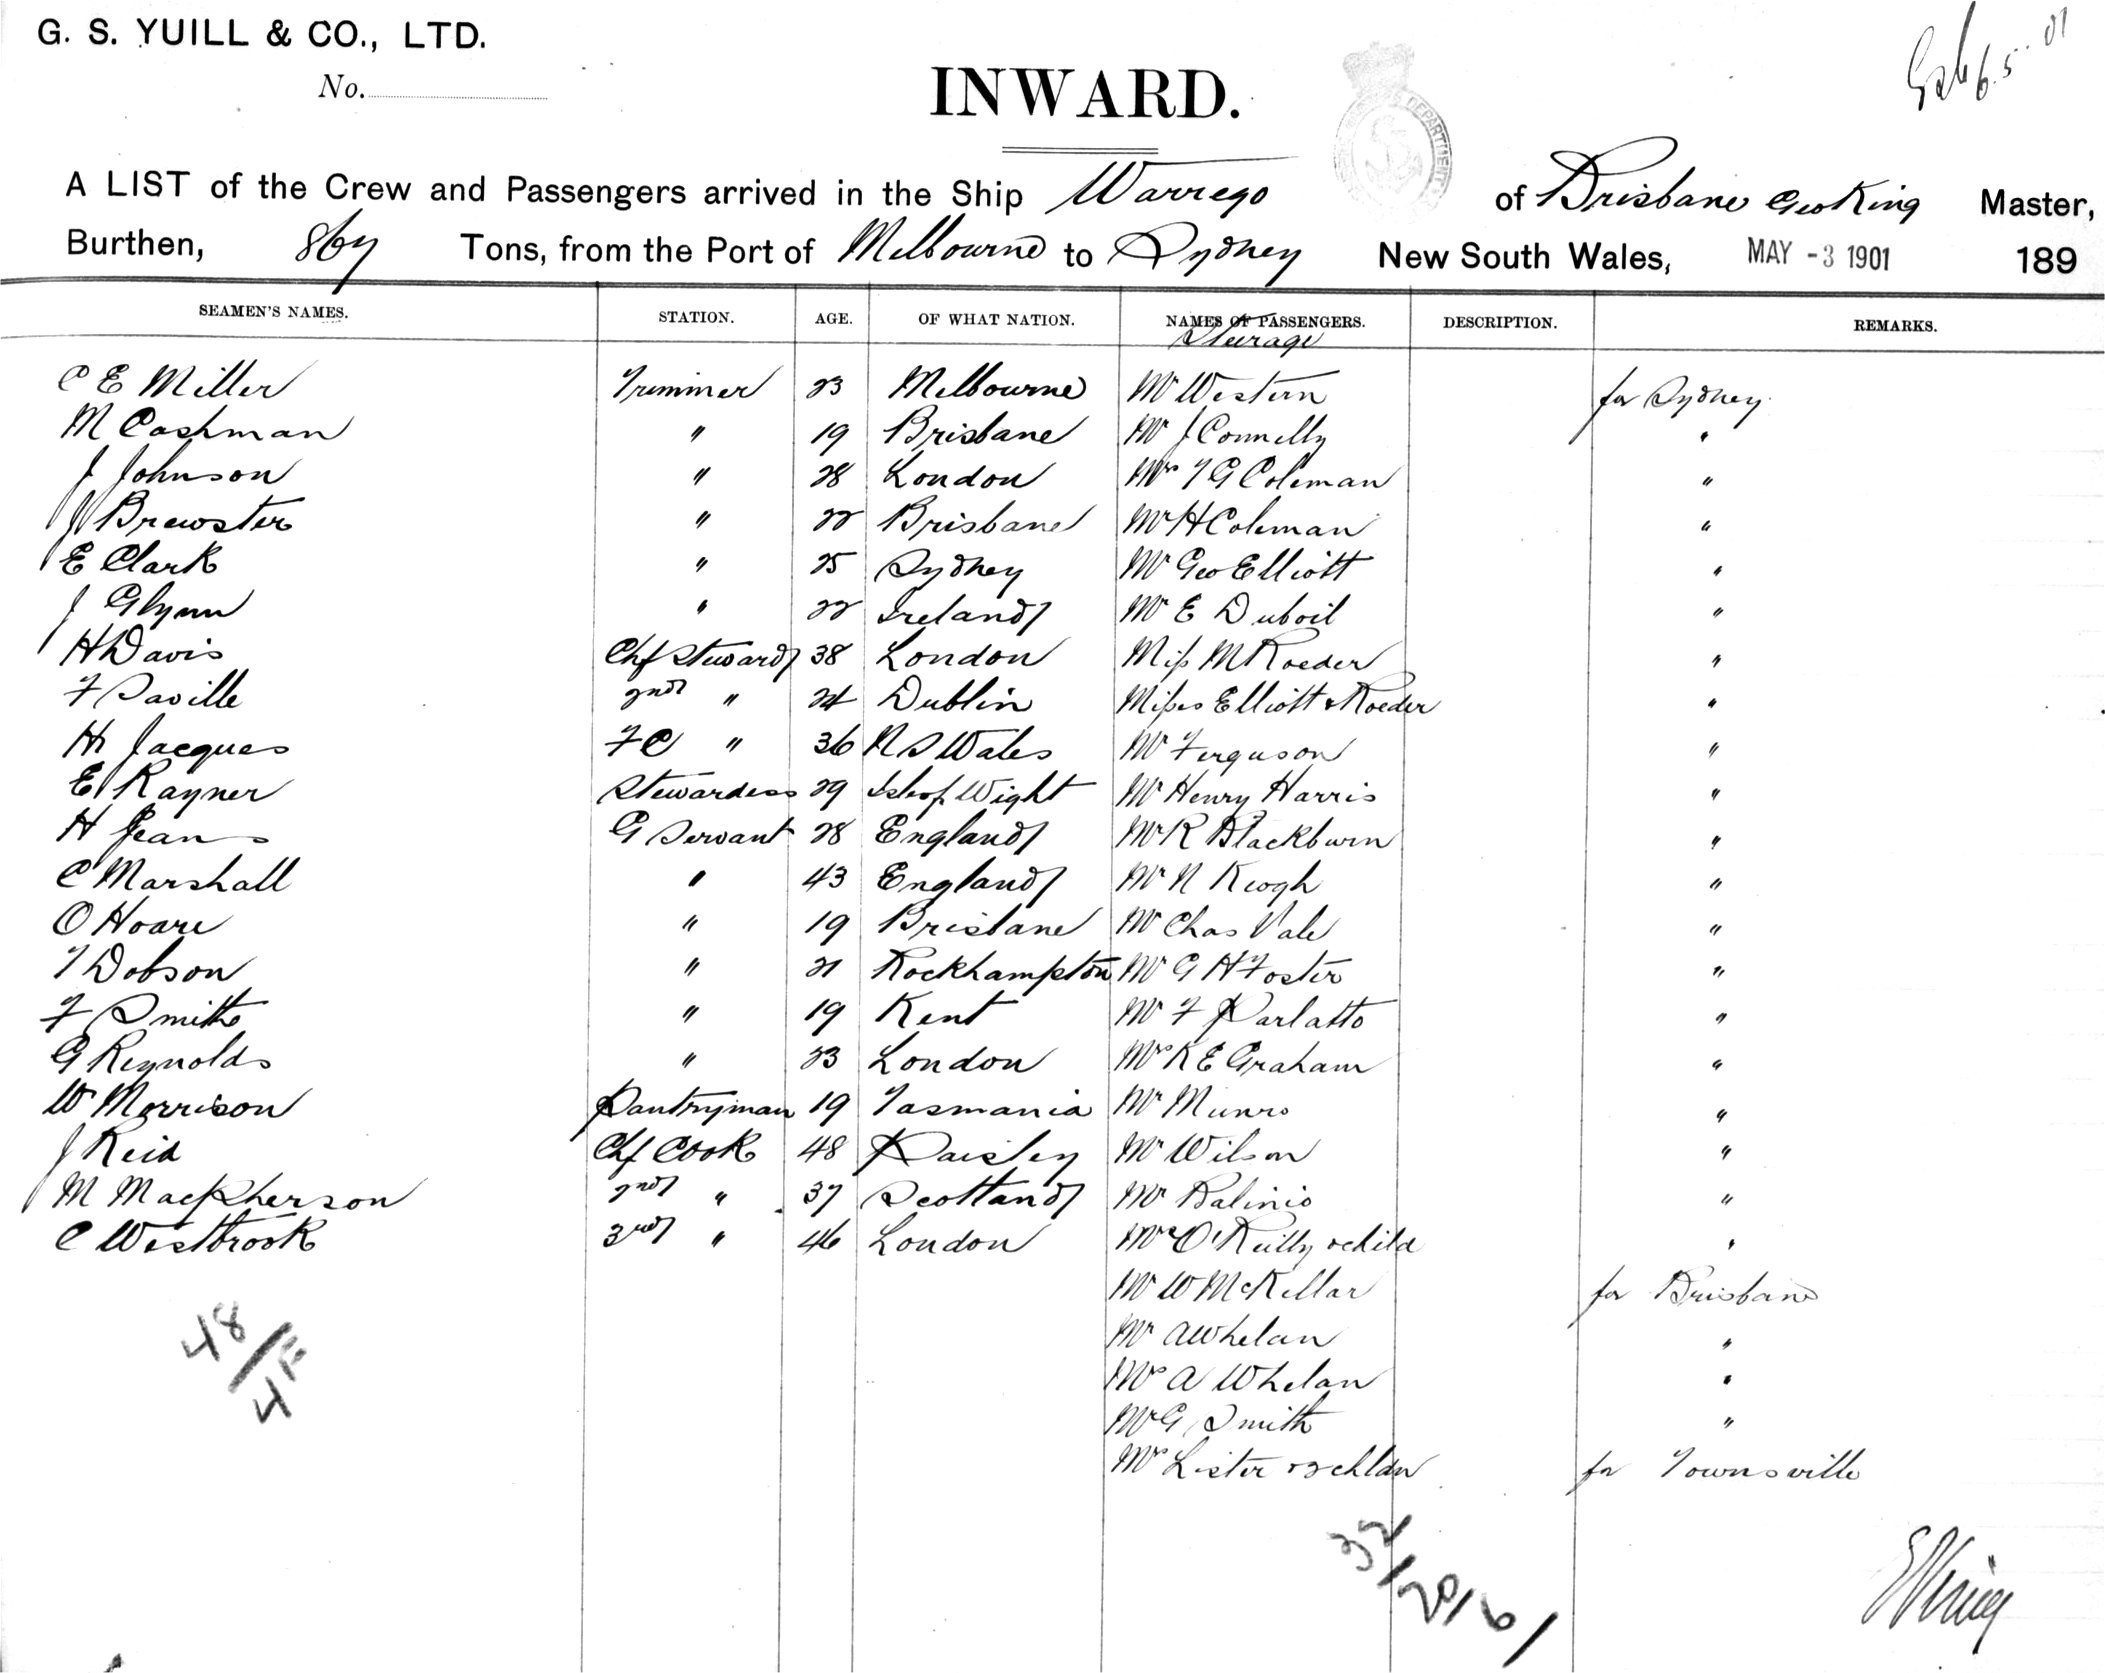 G. S. YUILL & CO., LTD.
6.5.01
No.
INWARD.
A LIST of the Crew and Passengers arrived in the Ship Warrego of Brisbane Geo King Master,
Burthen, 867 Tons, from the Port of Melbourne to Sydney New South Wales, MAY -3 1901 189
SEAMEN'S NAMES. STATION. AGE. OF WHAT NATION. NAMES OF PASSENGERS. DESCRIPTION. REMARKS.
Steerage
C E Miller Trimmer 23 Melbourne Mr Western for Sydney
M Cashman " 19 Brisbane Mr J Connelly "
J Johnson " 28 London Mrs T G Coleman "
J Brewster " 22 Brisbane Mr H Coleman "
E Clark " 25 Sydney Mr Geo Elliott "
J Glynn " 22 Ireland Mr E Duboil "
H Davis Chf Steward 38 London Miss M Roeder "
F Saville 2nd " 24 Dublin Misses Elliott & Roeder "
H Jacques F C " 36 N S Wales Mr Ferguson "
E Rayner Stewardess 29 Isle of Wight Mr Henry Harris "
H Jeans G Servant 28 England Mr R Blackburn "
C Marshall " 43 England Mr N Keogh "
O Hoare " 19 Brisbane Mr Chas Vale "
T Dobson " 21 Rockhampton Mr G H Foster "
F Smith " 19 Kent Mr F Parlatto "
G Reynolds " 23 London Mrs K E Graham "
W Morrison Pantryman 19 Tasmania Mr Munro "
J Reid Chf Cook 48 Paisley Mr Wilson "
M MacPherson 2nd " 37 Scotland Mr Balinio "
C Westbrook 3rd " 46 London Mrs O'Reilly & child "
Mr W McKellar for Brisbane
Mr A Whelan "
Mrs A Whelan "
Mr G Smith "
Mrs Lister & 3 chldn for Townsville
48/4F
32/20/6/1